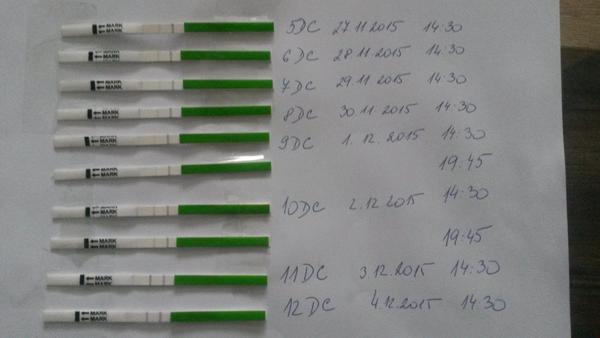 MARK MARK 5DC 27.11.2015 14:30
MARK MARK 6DC 28.11.2015 14:30
MARK MARK 7DC 29.11.2015 14:30
MARK MARK 8DC 30.11.2015 14:30
MARK MARK 9DC 1.12.2015 14:30
MARK MARK 19:45
MARK MARK 10DC 2.12.2015 14:30
MARK MARK 19:45
MARK MARK 11DC 3.12.2015 14:30
MARK MARK 12DC 4.12.2015 14:30